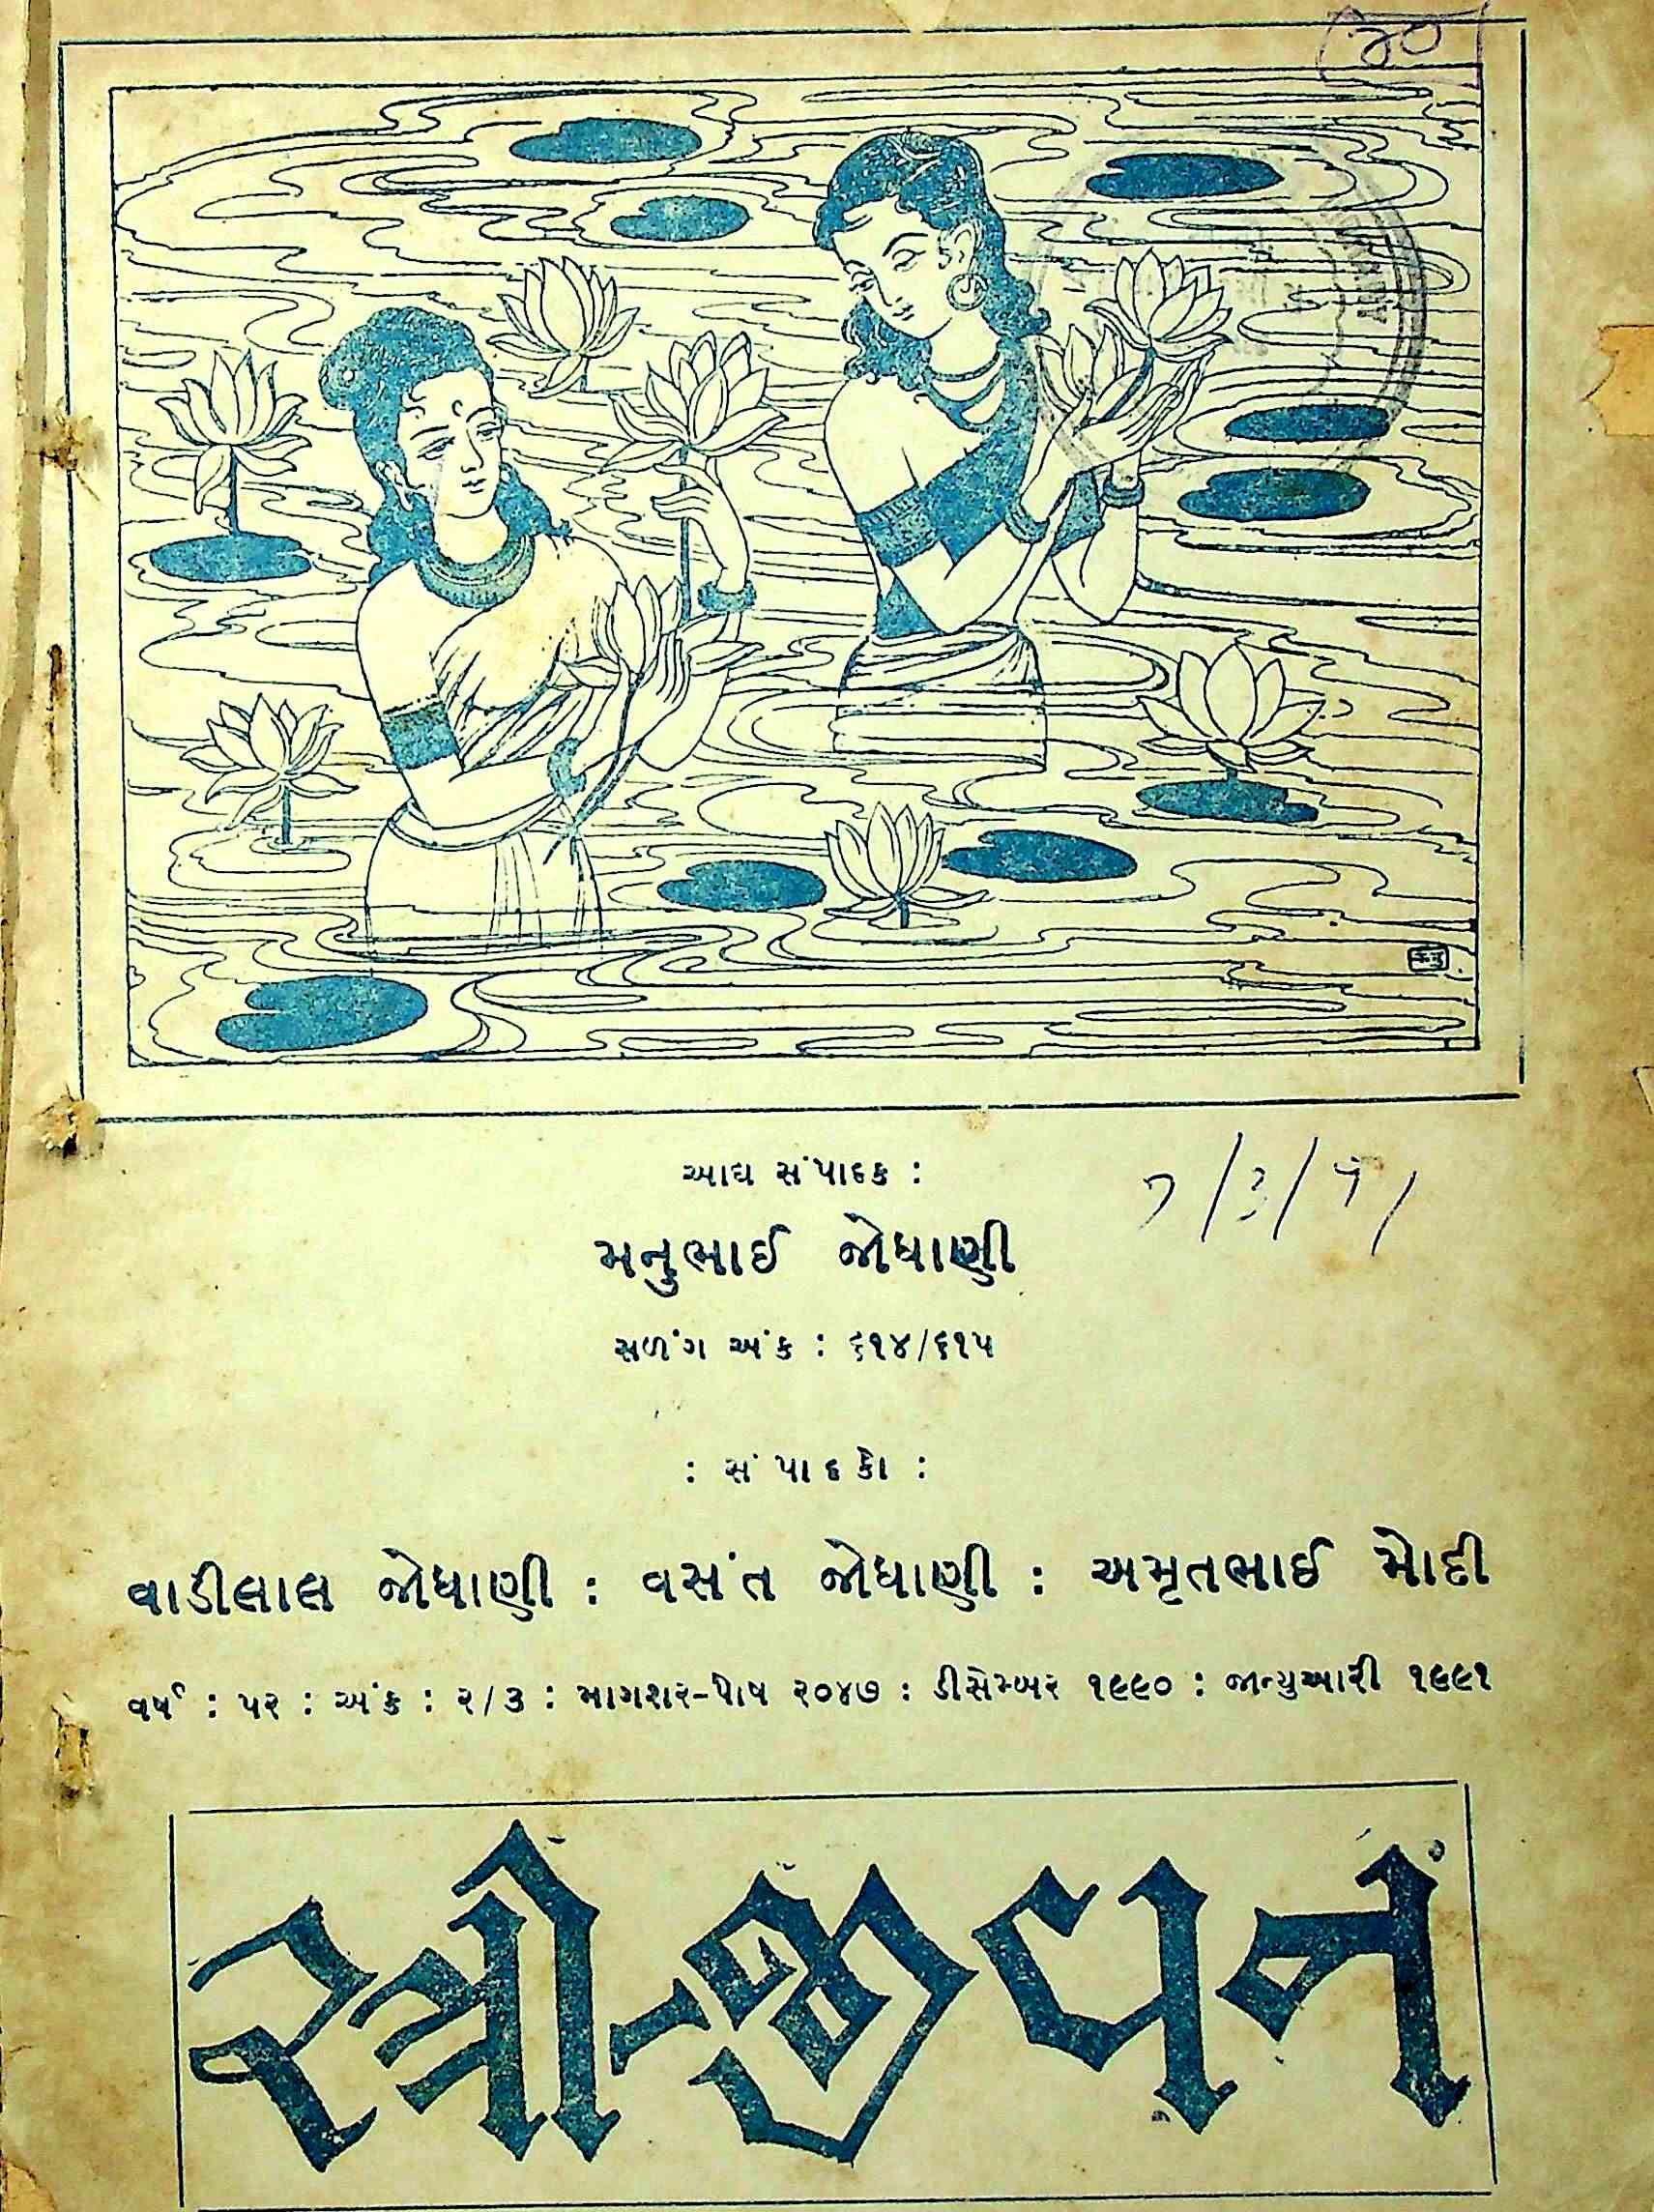 ૪૦
આદ્ય સંપાદક :
મનુભાઈ જોધાણી
૭/૩/૯૧
સળંગ અંક : ૬૧૪/૬૧૫
: સંપાદકો :
વાડીલાલ જોધાણી : વસંત જોધાણી : અમૃતભાઈ મોદી
વર્ષ : ૫૨ : અંક : ૨/૩ : માગશર-પોષ ૨૦૪૭ : ડીસેમ્બર ૧૯૯૦ : જાન્યુઆરી ૧૯૯૧
સ્ત્રી-જીવન